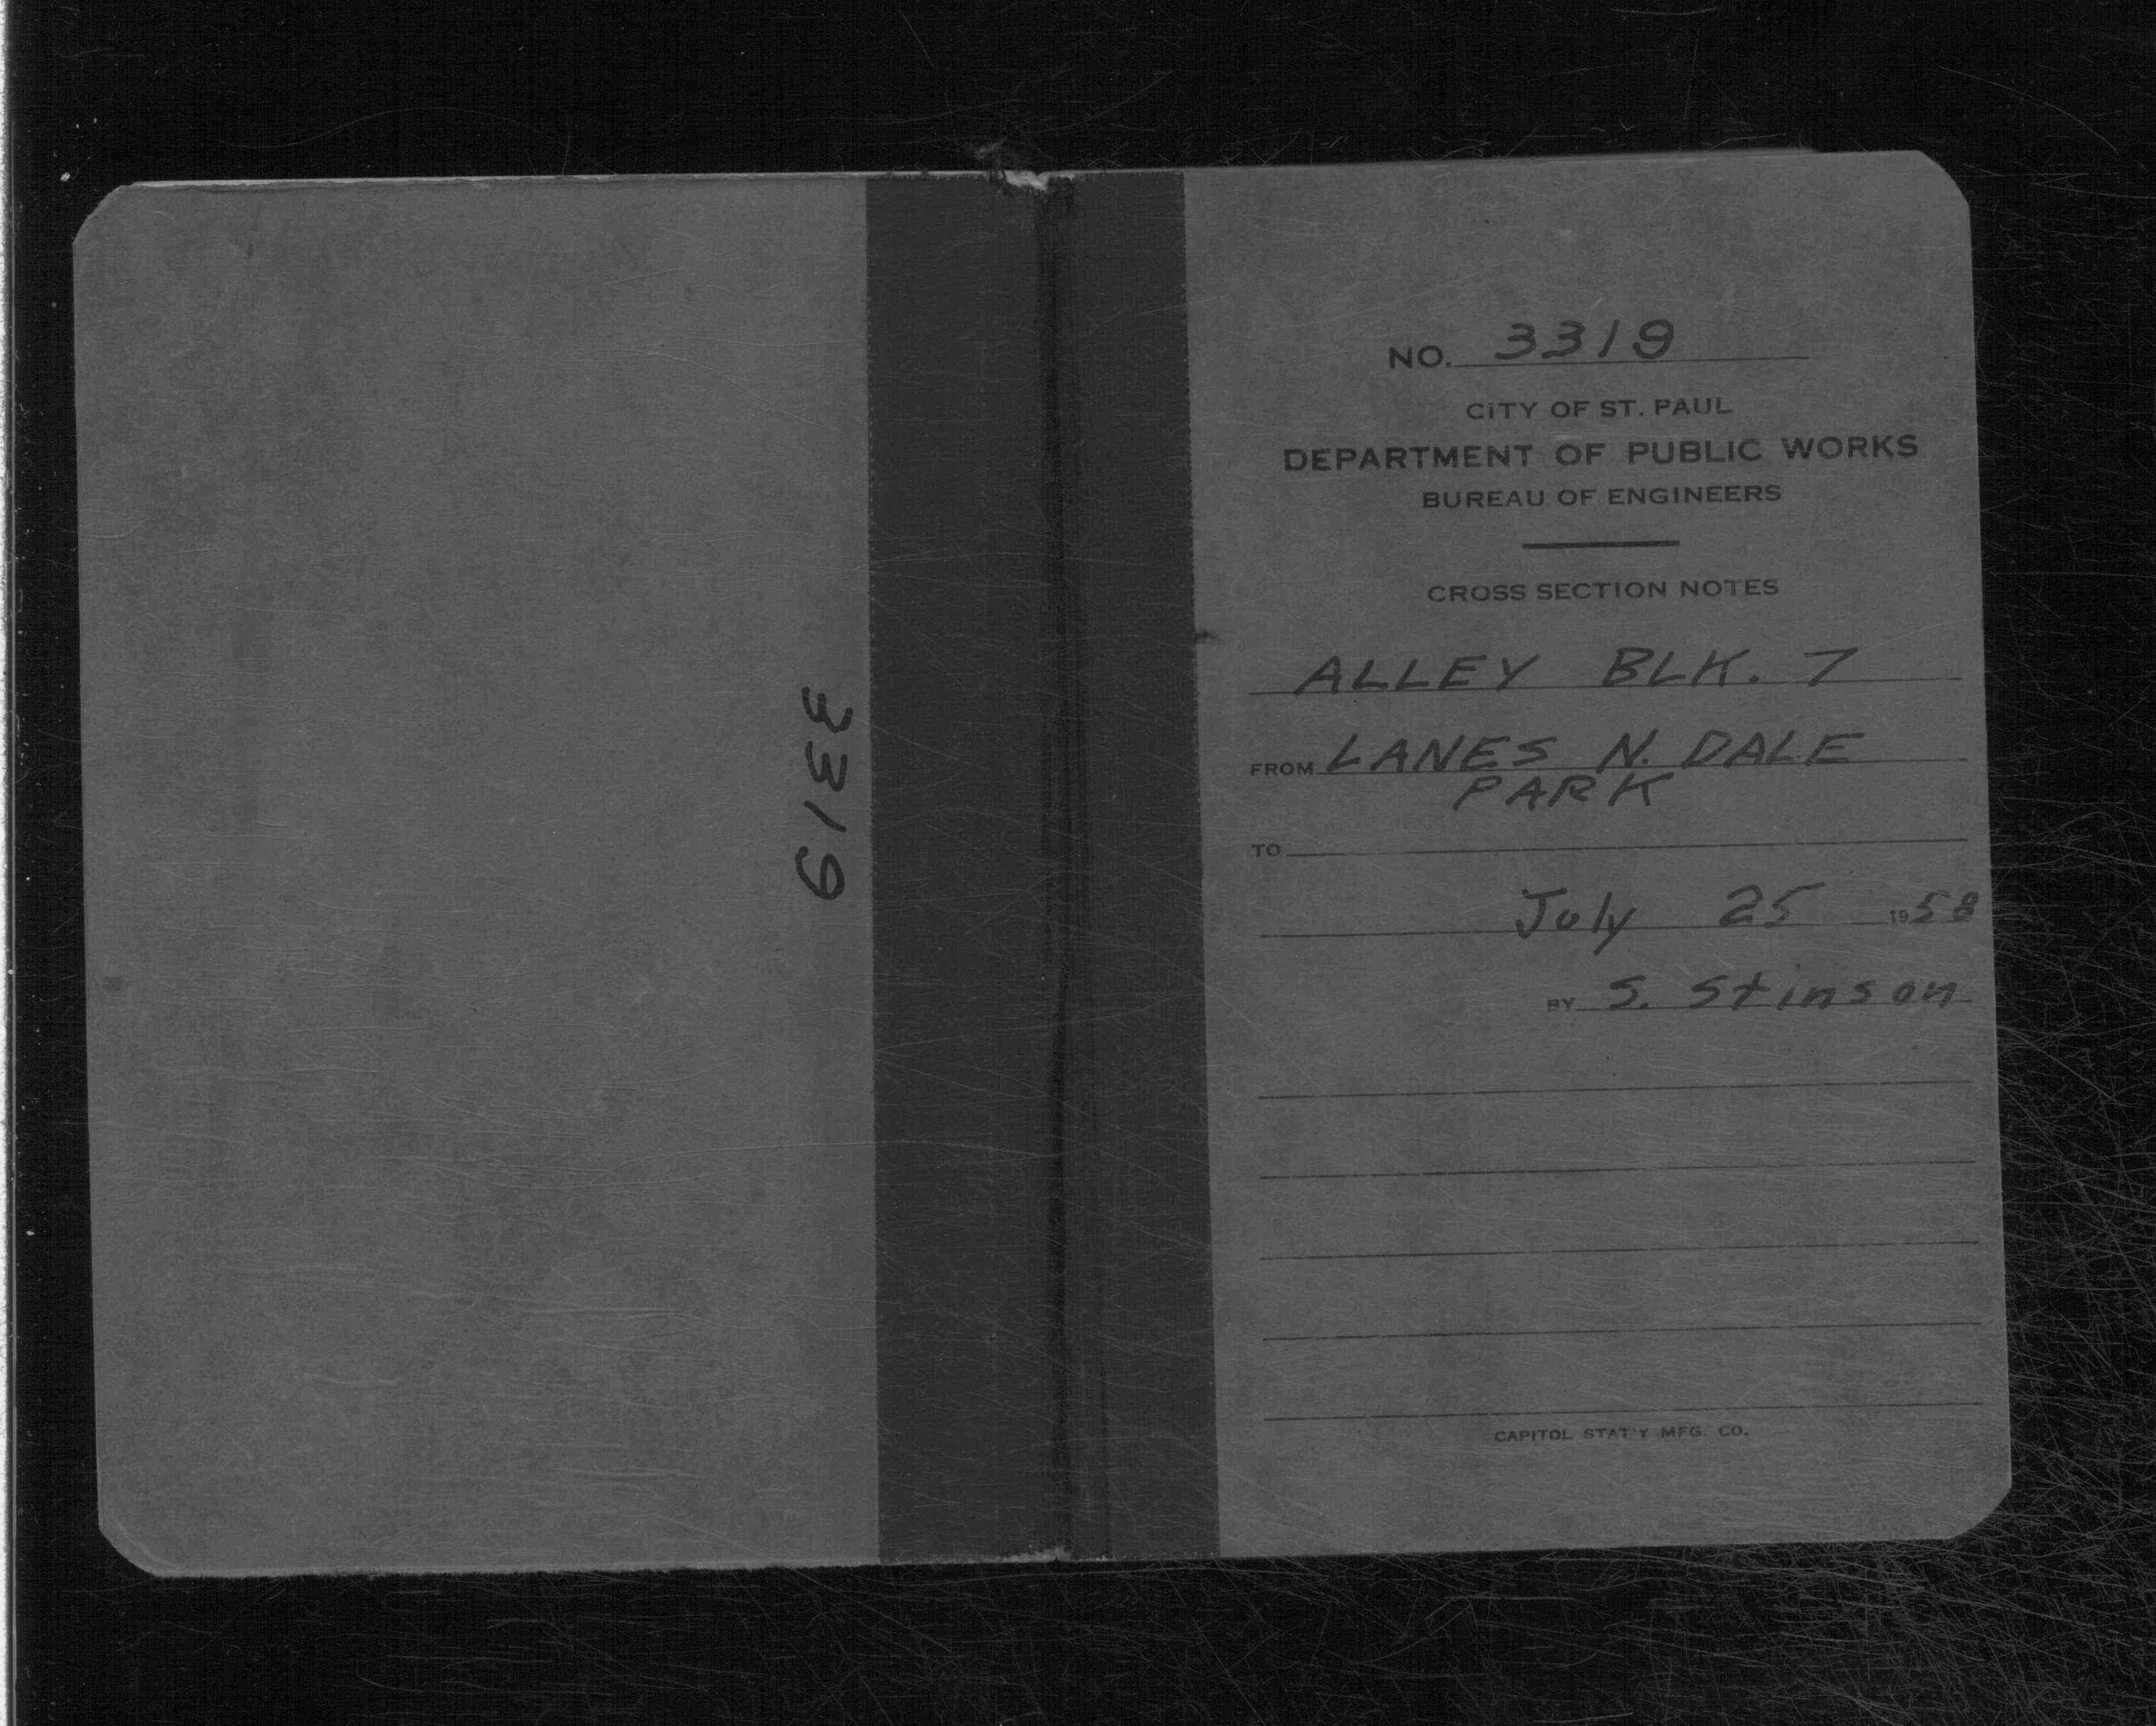 3319
NO. 3319
CITY OF ST. PAUL
DEPARTMENT OF PUBLIC WORKS
BUREAU OF ENGINEERS
CROSS SECTION NOTES
ALLEY BLK. 7
FROM LANES N. DALE
PARK
TO
July 25 1958
BY S. Stinson
CAPITOL STAT'Y MFG. CO.